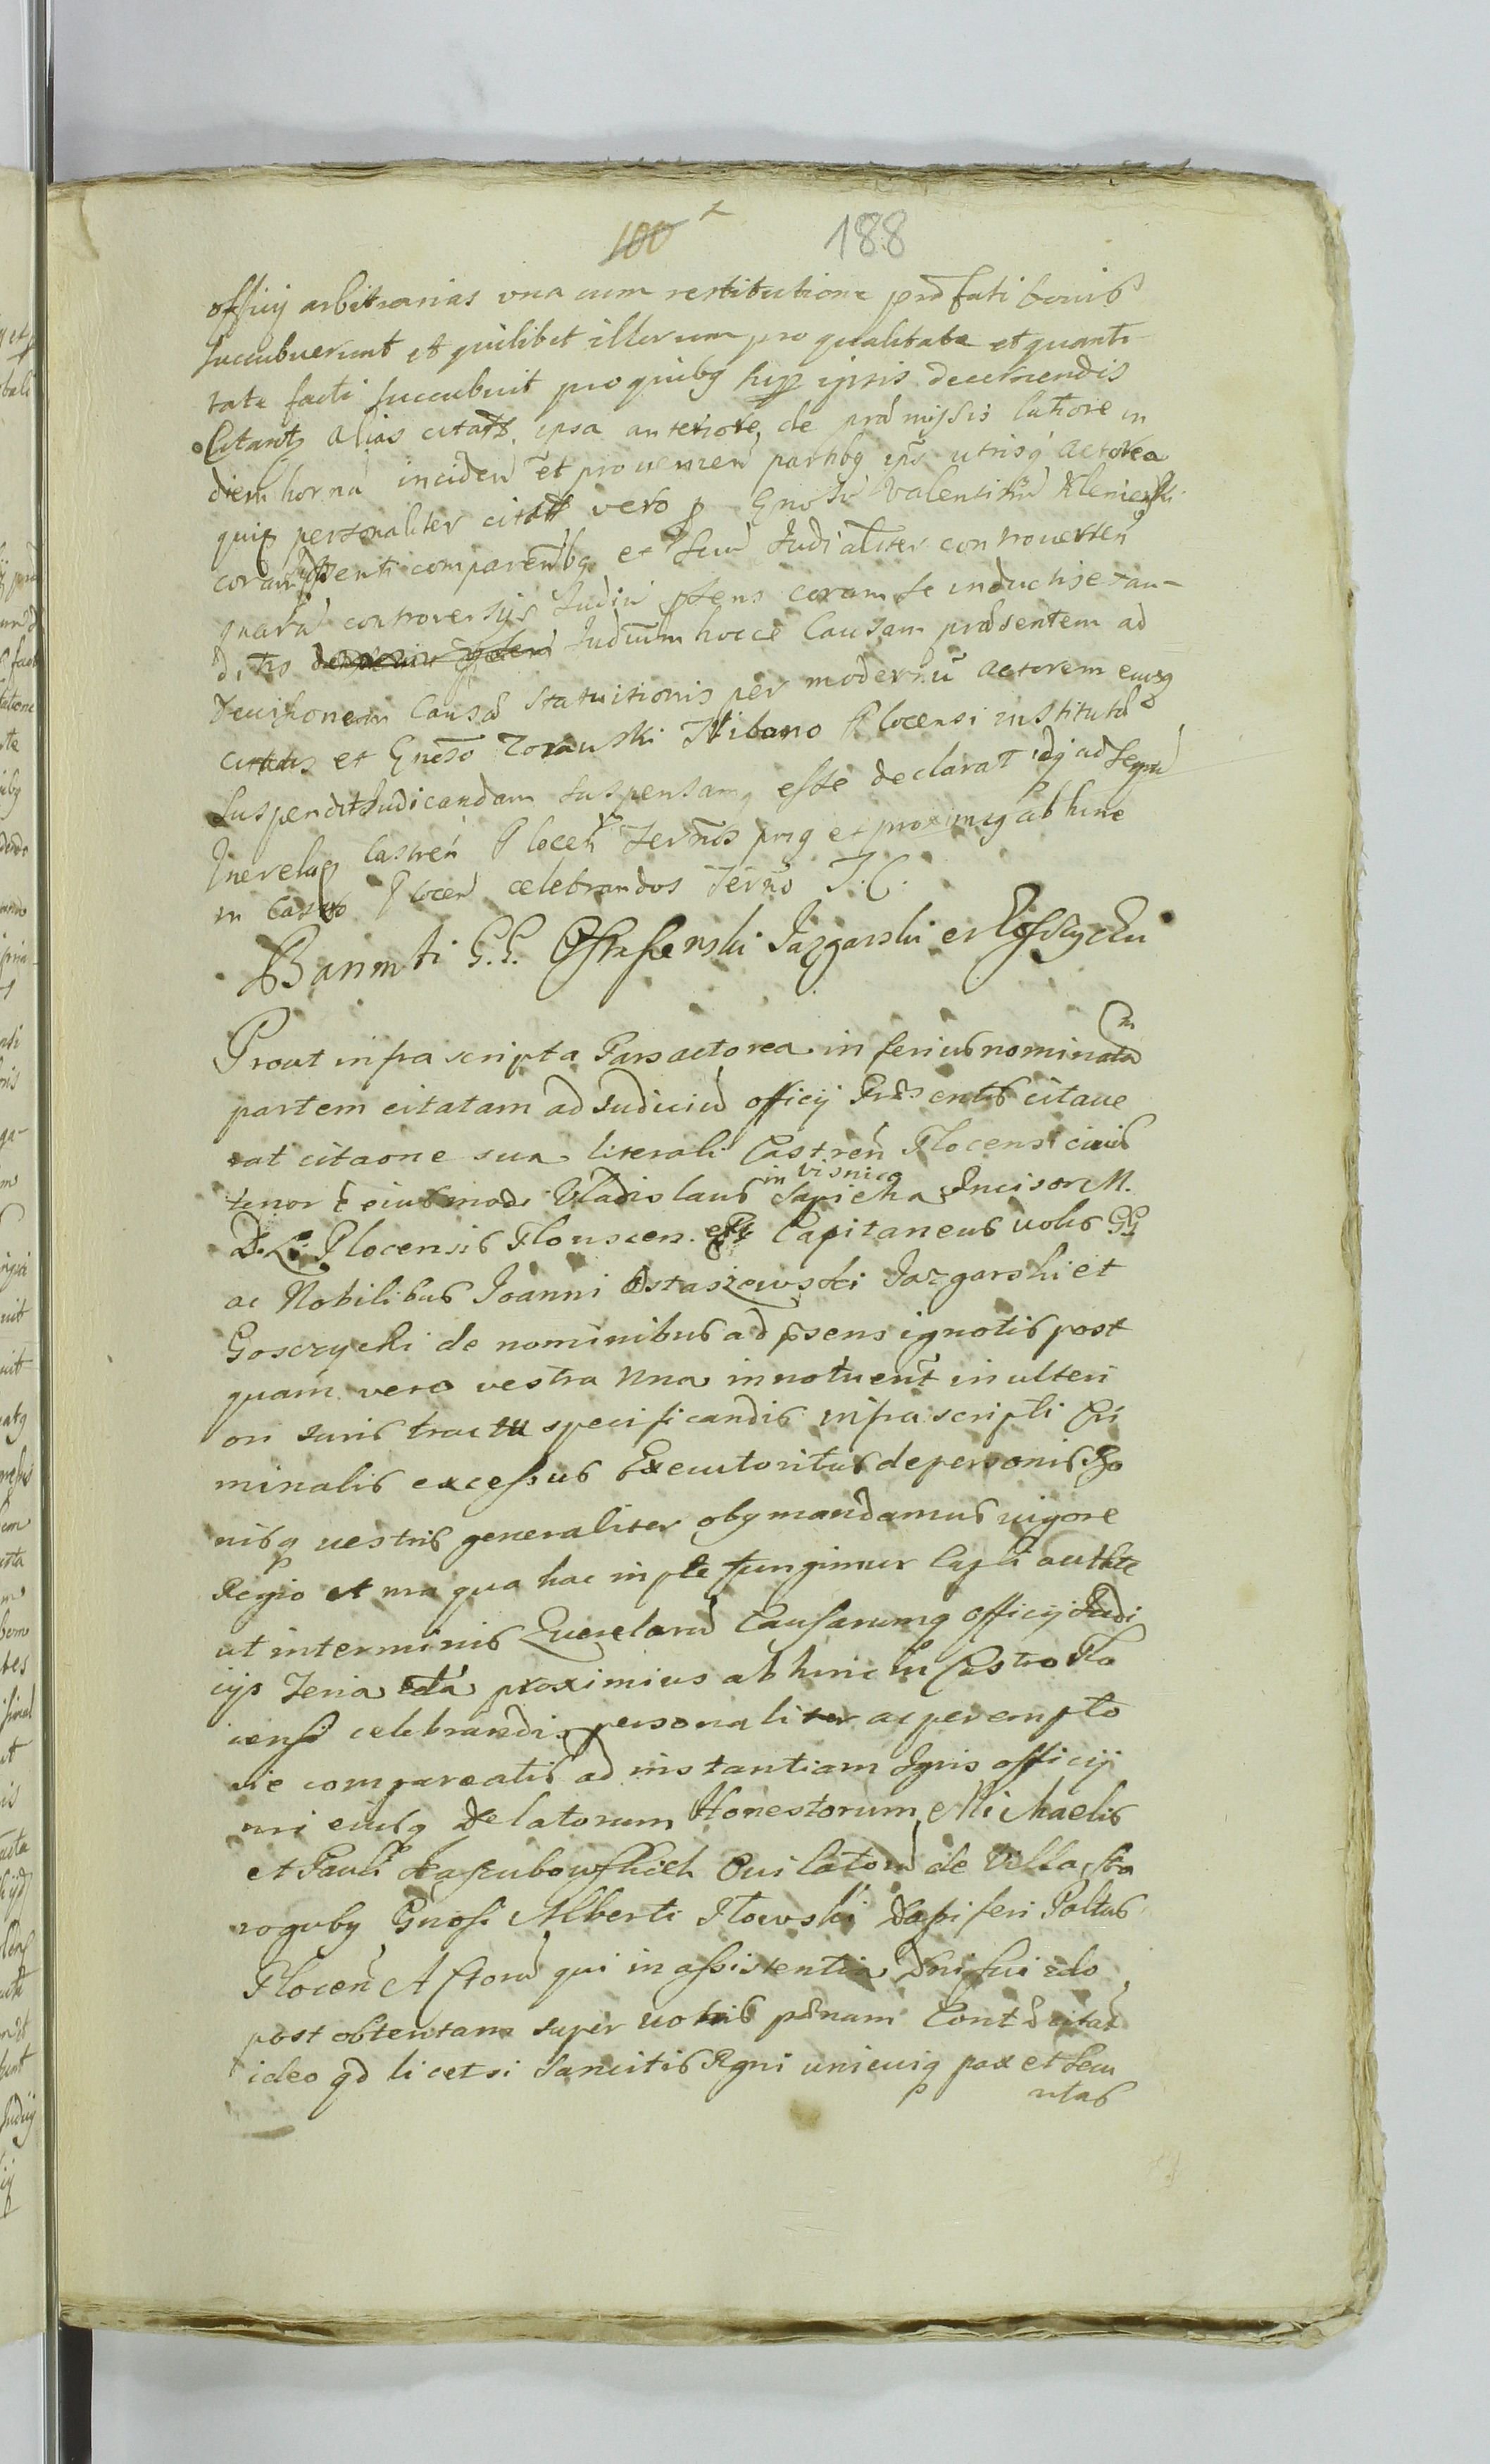 100 188
officij arbitrarias una cum restitutione praefati bovis
succubuerunt et quilibet illorum pro qualitate et quanti-
tate facti succubuit pro quibq hijs ipsis decernendis
Citant alias citatt. ipsa anteriore, de praemissis latiore in
diem hornā inciden et provenien partibq ips utrisq actorea
quip personaliter citatt vero p Gnosū Valentinū
coram pnti comparentibq et seu Judialiter controverten
quarū controversijs Judiū psens coram se inductis et au-
ditis Judicium hocce Causam praesentem ad
Decisionem Causae Statuitionis per modernū actorem eiusq
citatis et Gneso Zorawski Tribuno Plocensi institutae
Suspendit Judicandam suspensamq esse declarat idq ad
Querelaq Castren Plocen Ternos prig et proximig abhinc
in Castro Plocen celebrandos Terno J.C.
Banniti G.G. Jazgarski et
Prout infra scripta Pars actorea inferius nominatam
partem citatam ad Judiciū officij Praesentis citave
rat citaone sua literali Castren Plocensi cuius
tenor ē eiusmodi Vladislaus in Visnice Sapieha Incisor M.
D. L. Plocensis Plonscen. Capitaneus vobis GG
ac Nobilibus Joanni Ostaszewski Jazgarski et
Gosczycki de nominibus ad psens ignotis post
quam vero vestra nna innotuent in ulteri
ori Juris tractu specificandis infrascripti Cri
minalis excessus Executoribus de personis Bo
nisq vestris generaliter obq mandamus vigore
Regio et nra qua hac in pte fungimur Capli authte
ut in terminis Querelarū Causarumq officij Judi
cijs Feria 2dā proximius abhinc in Castro Plo
censi celebrandis personaliter ac perempto
rie compareatis ad instantiam Ignis officij
nri eiusq Delatorum Honestorum Michaelis
et Pauli Kaszubowskich Ovilatorū de Villa Sta
roguby Gnosi Alberti Ilowski Dapiferi Paltus
Plocen Actorū qui in assistentia Dni sui 2do
post obtentam super vobis paenam Cont citat
ideo qd licet si Sancitis Regni unicuiq pax et Secu
ritas